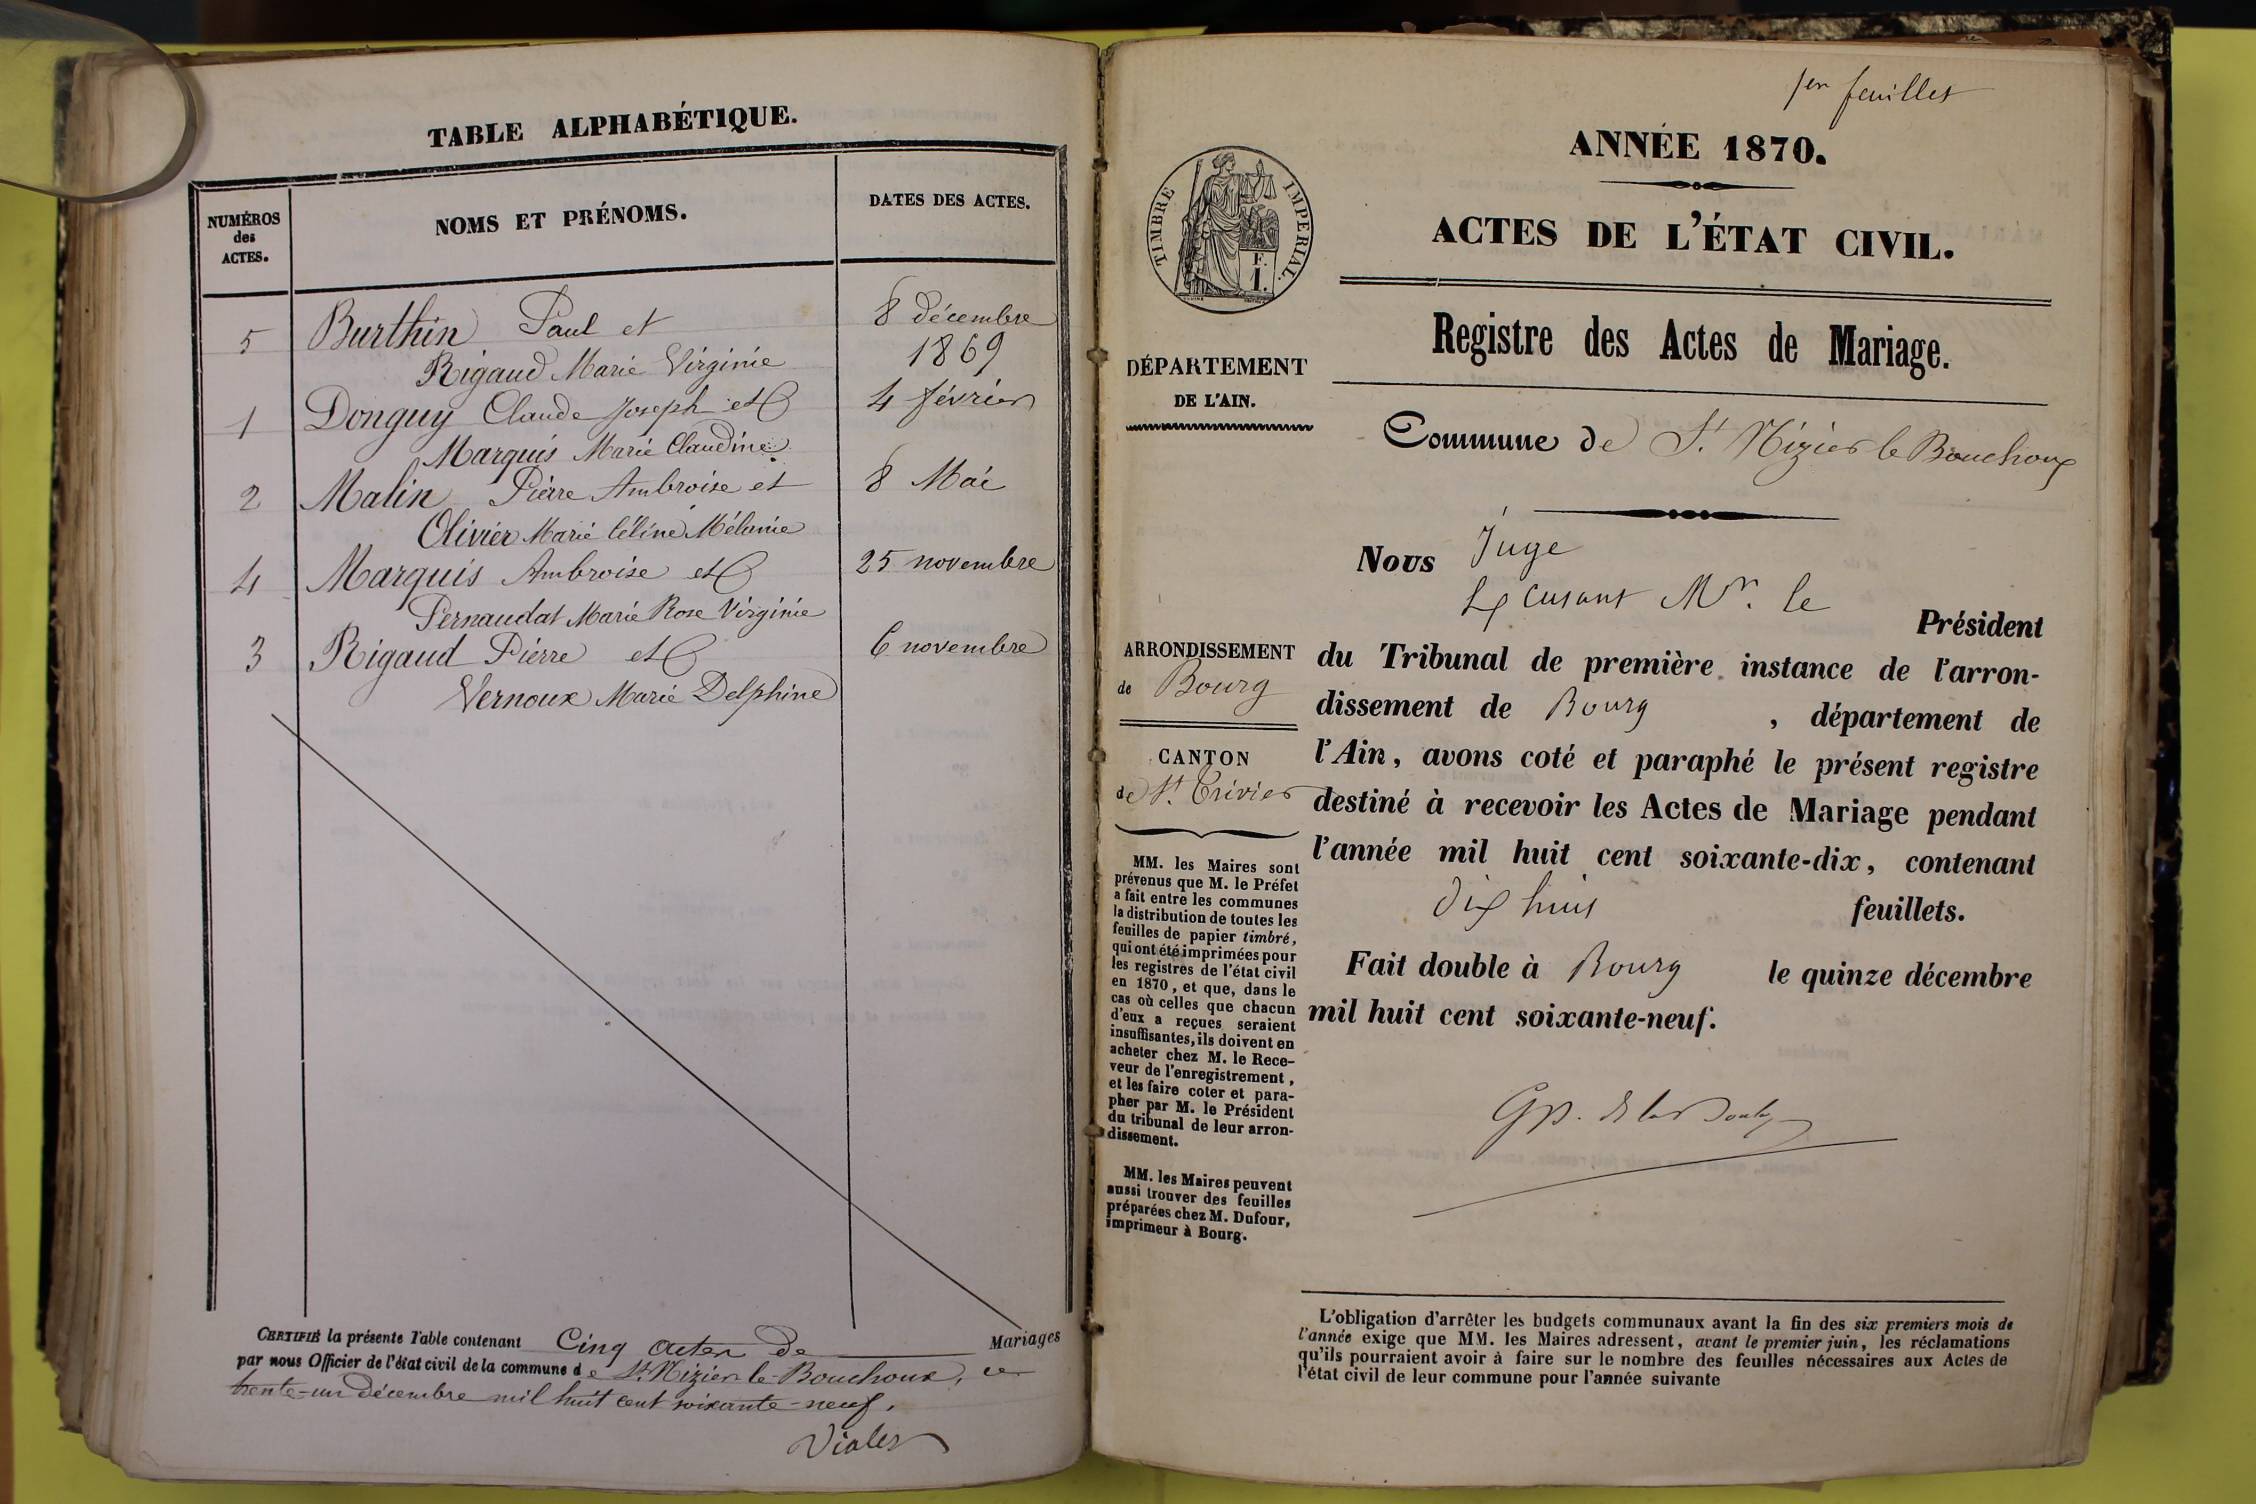 TABLE ALPHABÉTIQUE.
NUMÉROS
des
ACTES.
NOMS ET PRÉNOMS.
DATES DES ACTES.
5 Burthin Paul et 8 décembre
Rigaud Marie Virginie 1869
1 Donguy Claude Joseph et 4 février
Marquis Marie Claudine
2 Malin Pierre Ambroise et 8 Mai
Olivier Marie Céline Mélanie
4 Marquis Ambroise et 25 novembre
Pernaudat Marie Rose Virginie
3 Rigaud Pierre et 6 novembre
Vernoux Marie Delphine
CERTIFIÉ la présente Table contenant Cinq actes de Mariages
par nous Officier de l'état civil de la commune de St. Nizier-le-Bouchoux, ce
trente-un décembre mil huit cent soixante-neuf.
1er feuillet
ANNÉE 1870.
TIMBRE IMPERIAL.
F.
1.
ACTES DE L'ÉTAT CIVIL.
Registre des Actes de Mariage.
DÉPARTEMENT
DE L'AIN.
Commune de St Nizier le Bouchoux
ARRONDISSEMENT
de Bourg
CANTON
de St. Trivier
MM. les Maires sont
prévenus que M. le Préfet
a fait entre les communes
la distribution de toutes les
feuilles de papier timbré,
qui ont été imprimées pour
les registres de l'état civil
en 1870, et que, dans le
cas où celles que chacun
d'eux a reçues seraient
insuffisantes, ils doivent en
acheter chez M. le Rece-
veur de l'enregistrement,
et les faire coter et para-
pher par M. le Président
du tribunal de leur arron-
dissement.
MM. les Maires peuvent
aussi trouver des feuilles
préparées chez M. Dufour,
imprimeur à Bourg.
Nous Juge
Mr. le
Président
du Tribunal de première instance de l'arron-
dissement de Bourg, département de
l'Ain, avons coté et paraphé le présent registre
destiné à recevoir les Actes de Mariage pendant
l'année mil huit cent soixante-dix, contenant
dix huit feuillets.
Fait double à Bourg le quinze décembre
mil huit cent soixante-neuf.
L'obligation d'arrêter les budgets communaux avant la fin des six premiers mois de
l'année exige que MM. les Maires adressent, avant le premier juin, les réclamations
qu'ils pourraient avoir à faire sur le nombre des feuilles nécessaires aux Actes de
l'état civil de leur commune pour l'année suivante